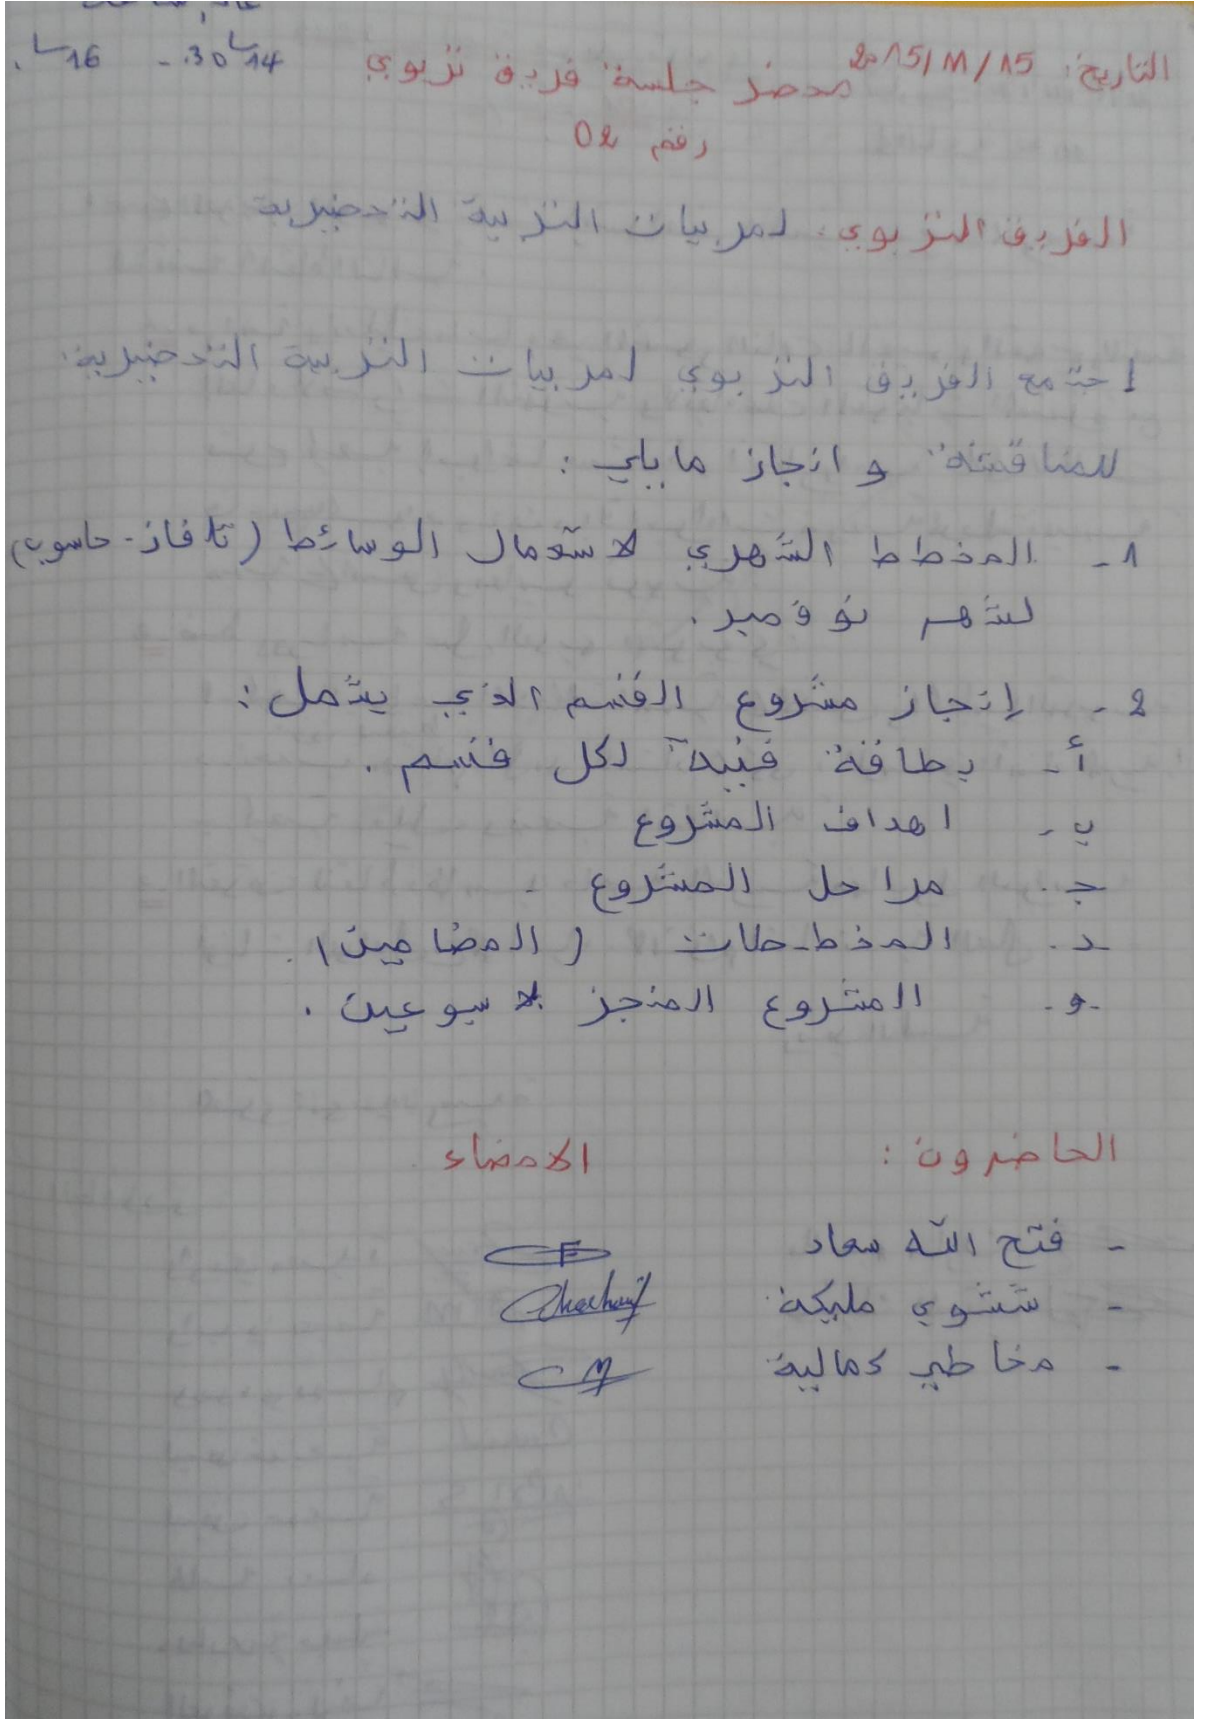 التاريخ: 2015/11/15 محضر جلسة فريق تربوي 14سا30 - 16سا.
رقم 02
الفريق التربوي: لمربيات التربية التحضيرية
اجتمع الفريق التربوي لمربيات التربية التحضيرية.
للمناقشة وانجاز مايلي :
1- المخطط الشهري لاستعمال الوسائط (تلفاز - حاسوب)
لشهر نوفمبر.
2- إنجاز مشروع القسم الذي يشمل :
أ- بطاقة فنية لكل قسم .
ب- اهداف المشروع
ج- مراحل المشروع -
د- المخططات (المضامين).
و- المشروع المنجز لاسبوعين .
الحاضرون : الامضاء
- فتح الله سعاد
- ششوي مليكة
- مخاطير كمالية